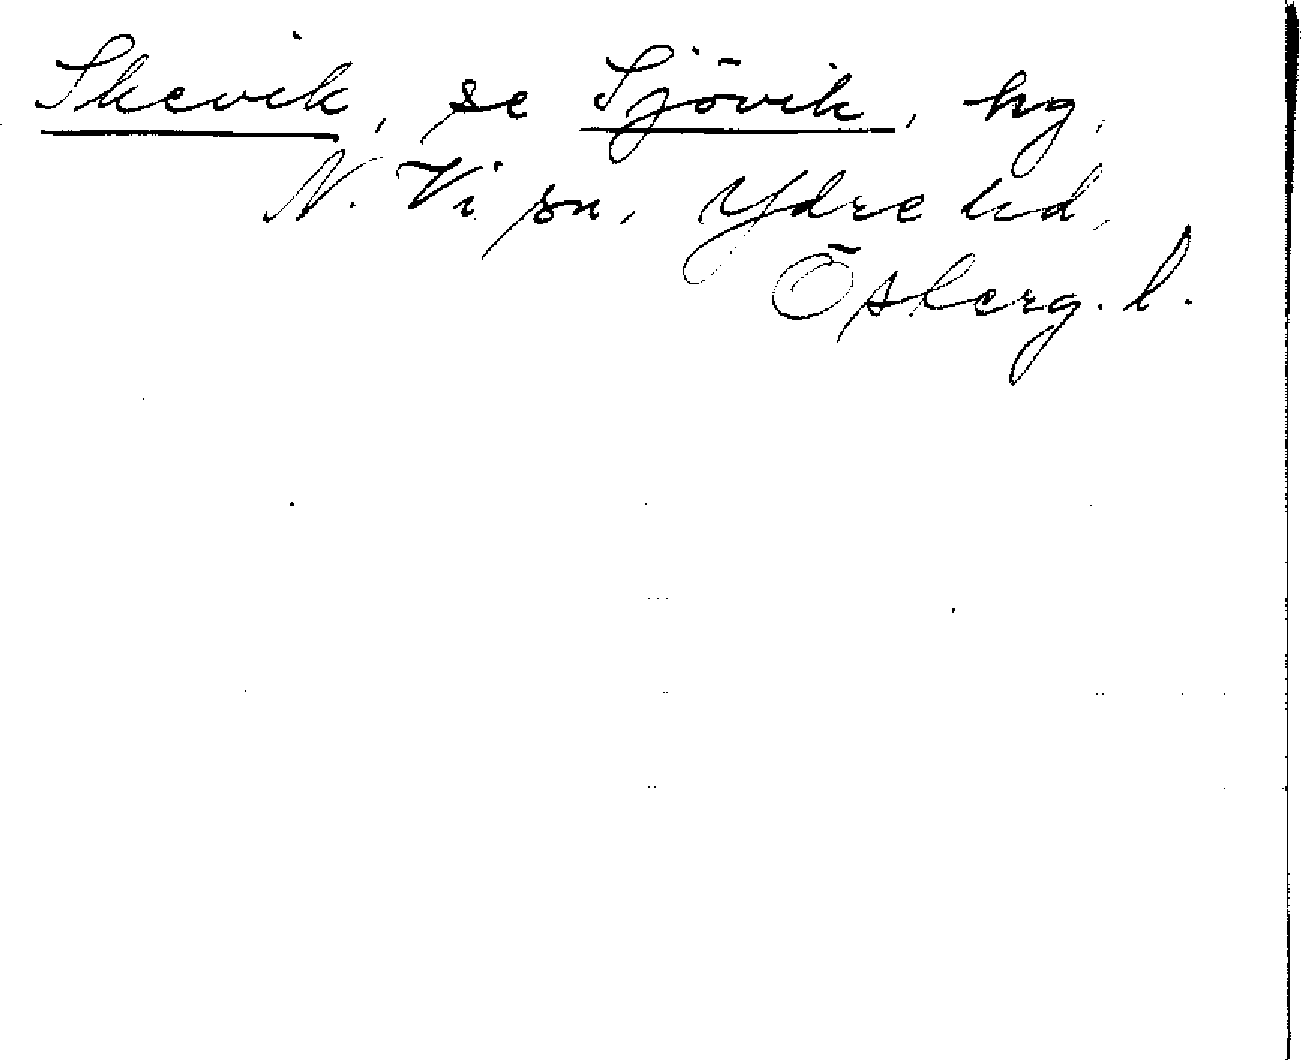 Skevik, se Sjövik, hg,
N. Vi sn, Ydre hd,
Östberg. l.